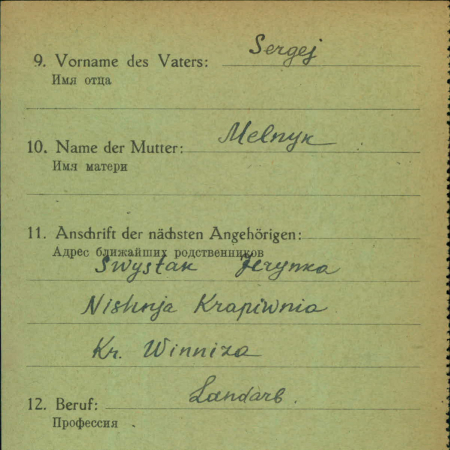 9. Vorname des Vaters: Sergej
Имя отца
10. Name der Mutter: Melnyk
Имя матери
11. Anschrift der nächsten Angehörigen:
Адрес ближайших родственников
Swystak Jerynka
Nishnja Krapiwnia
Kr. Winniza
12. Beruf: Landarb.
Профессия